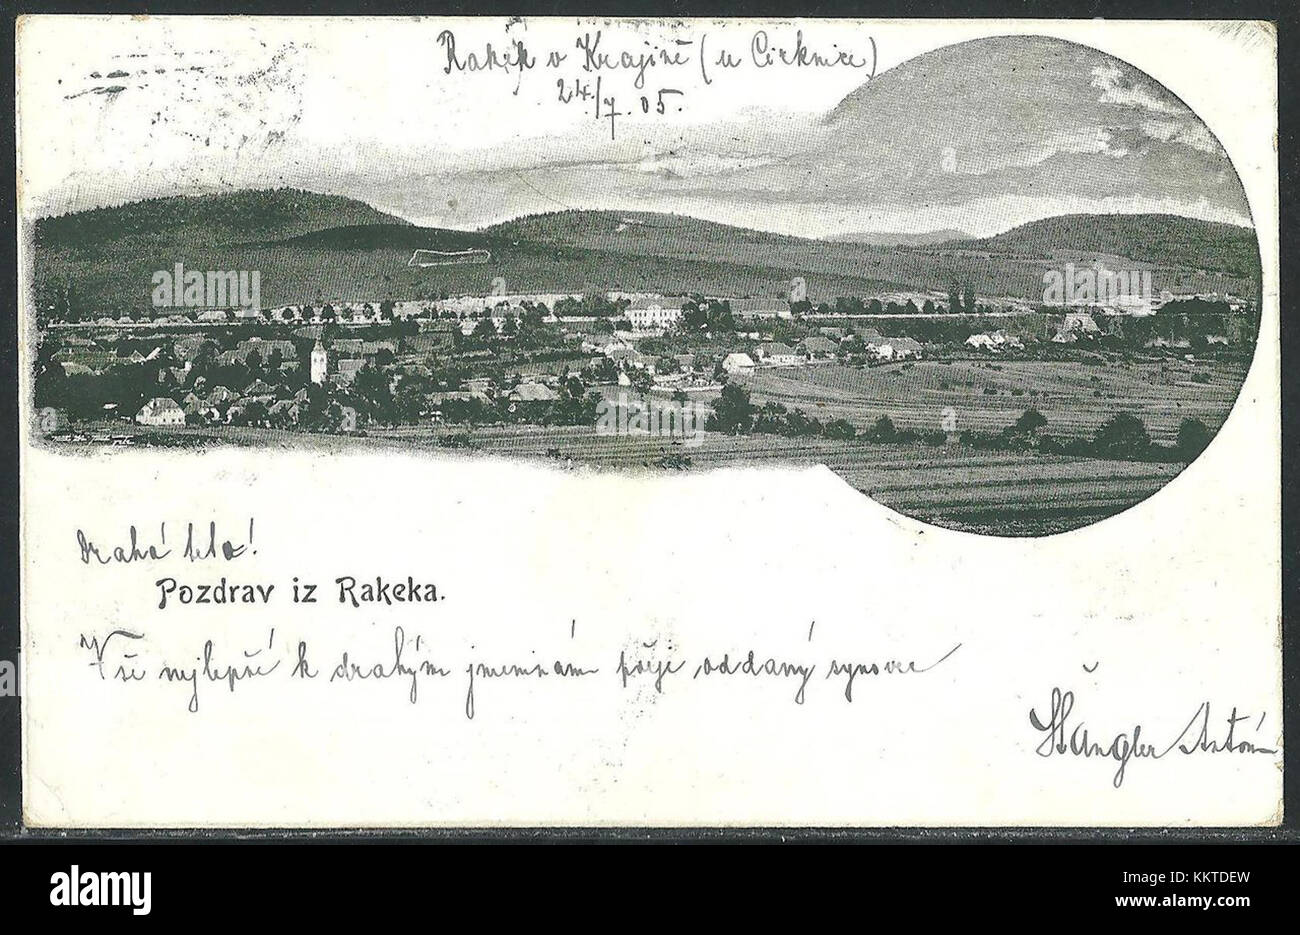 Rakek v Krajině (u Cirknice)
24./7. 05.
Drahá teto!
Pozdrav iz Rakeka.
Vše nejlepší k drahým jmeninám přeje oddaný synovec
Štangler Antonín
alamy
Image ID: KKTDEW
www.alamy.com